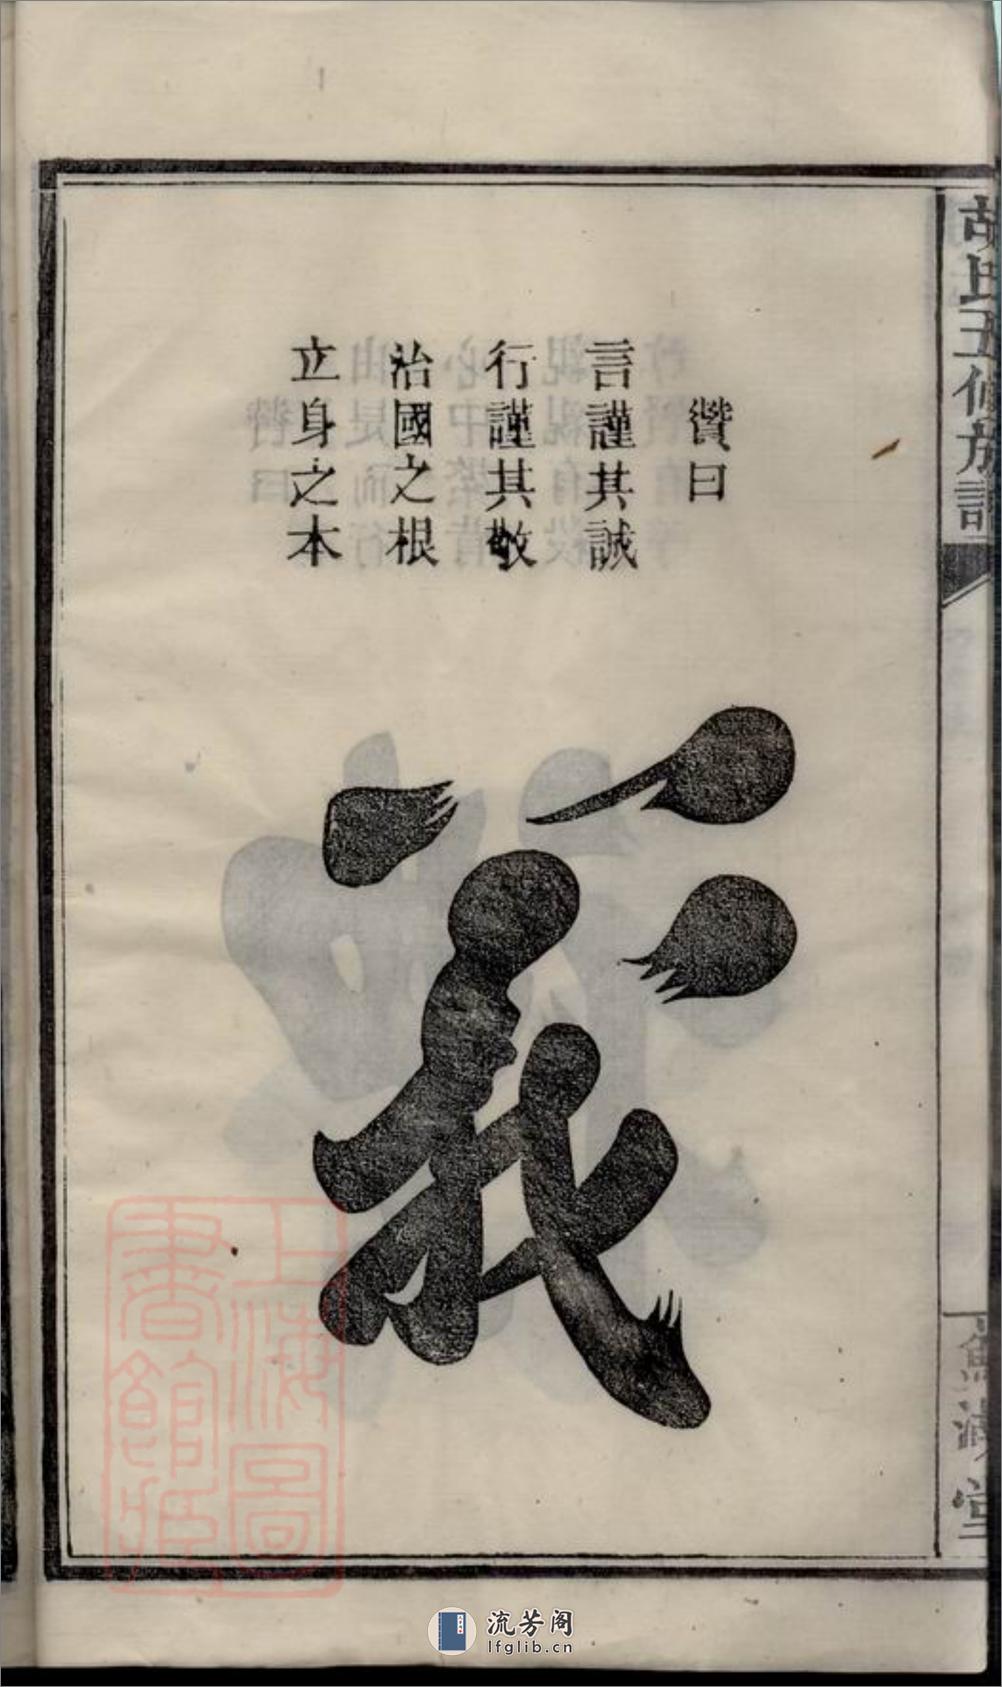 贊曰
言謹其誠
行謹其敬
治國之根
立身之本
義
胡氏五修族譜
堂
上海圖書館藏
流芳阁
lfglib.cn